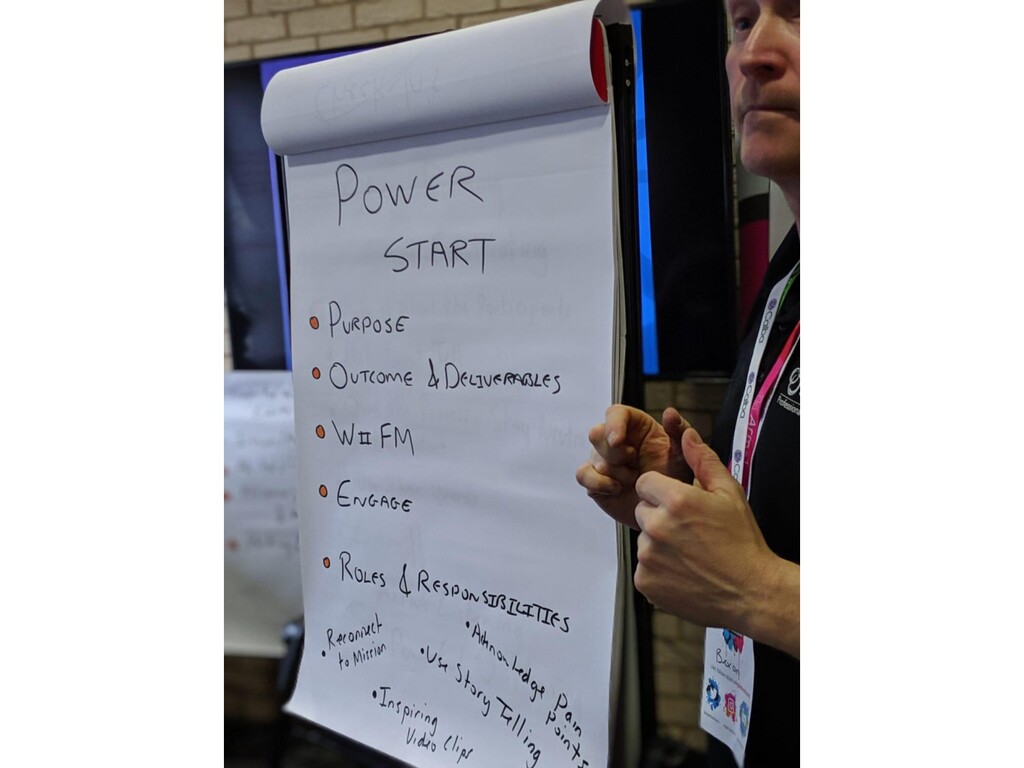 POWER
START
• PURPOSE
• OUTCOME & DELIVERABLES
• WIIFM
• ENGAGE
• ROLES & RESPONSIBILITIES
• Reconnect
to Mission
• Acknowledge Pain
Points
• Use Story Telling
• Inspiring
Video Clips
Colba
Colba
Colba
Professional